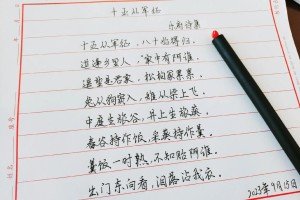 十五从军征
乐府诗集
十五从军征,八十始得归。
道逢乡里人,“家中有阿谁。
遥望是君家,松柏冢累累。
兔从狗窦入,雉从梁上飞。
中庭生旅谷,井上生旅葵。
舂谷持作饭,采葵持作羹。
羹饭一时熟,不知贻阿谁。
出门东向看,泪落沾我衣。
2023年9月15日